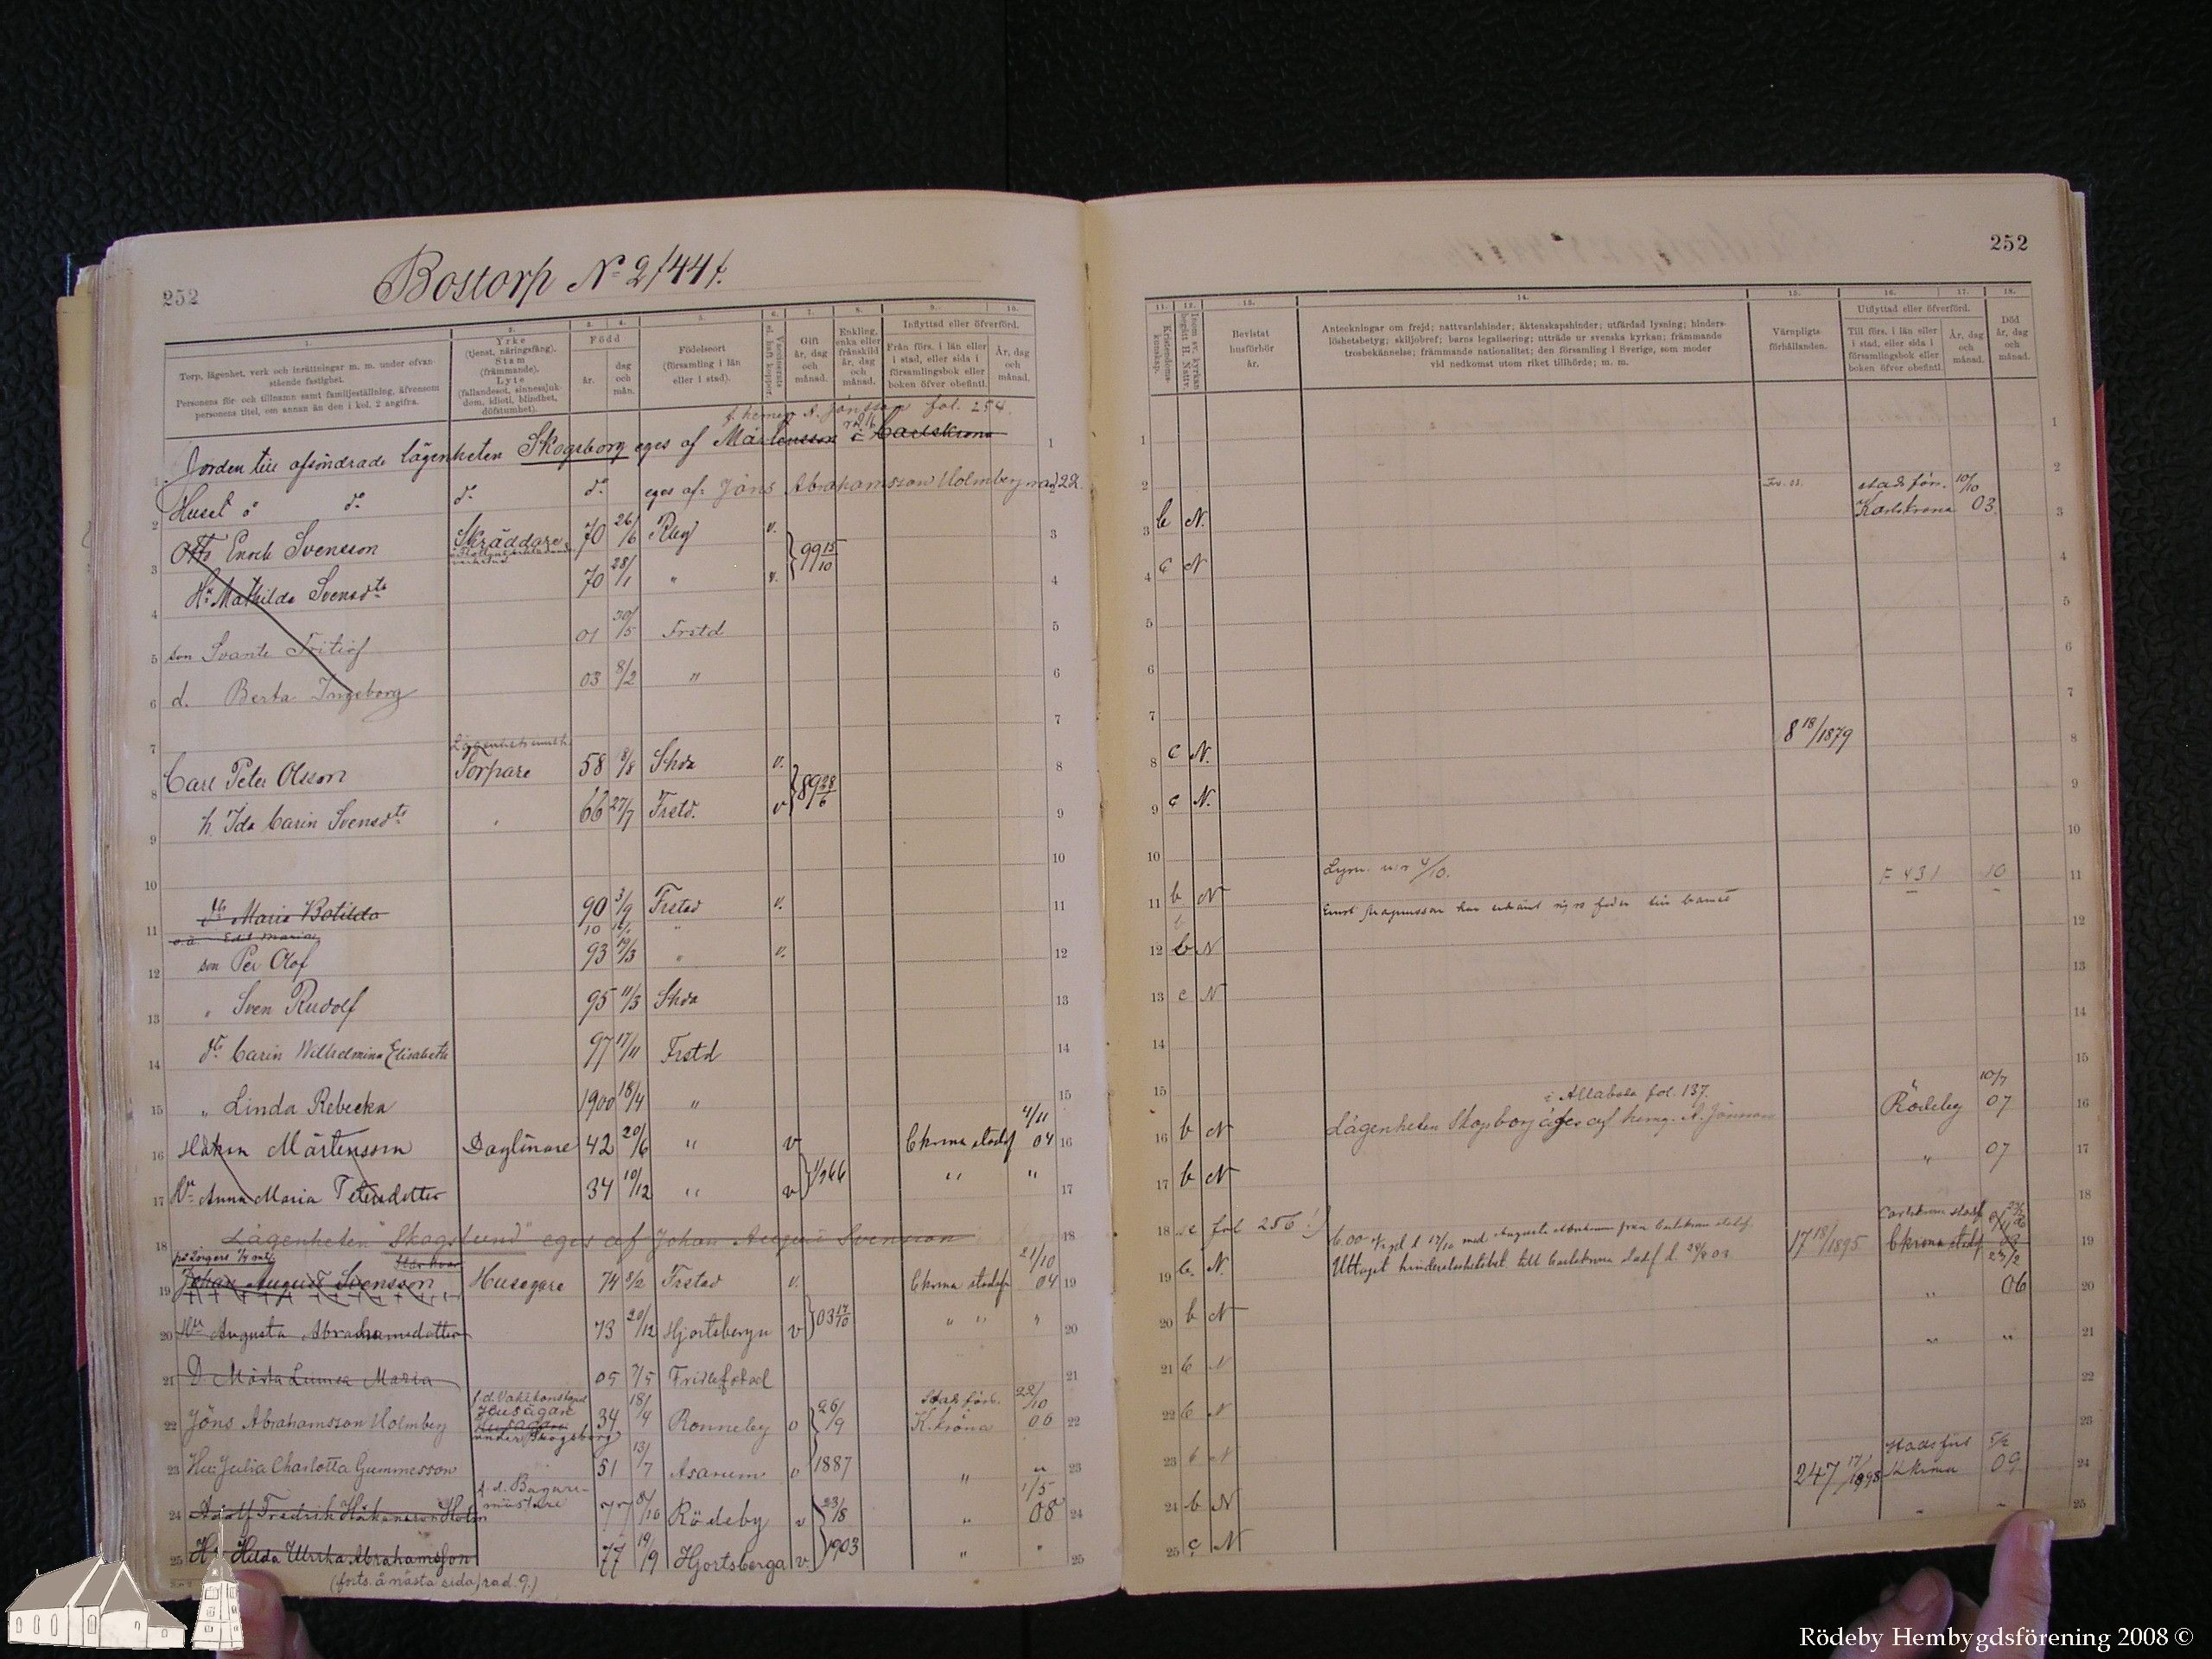 252
Bostorp № 2/44 f.
1.
Torp, lägenhet, verk och inrättningar m. m. under ofvanstående fastighet.
Personens för- och tillnamn samt familjeställning, äfvensom personens titel, om annan än den i kol. 2 angifna.
2.
Yrke
(tjenst, näringsfång).
Stam
(främmande).
Lyte
(fallandesot, sinnessjukdom, idioti, blindhet, döfstumhet).
3. 4.
Född
år. dag och mån.
5.
Födelseort
(församling i län eller i stad).
6.
Vaccinerats el. haft koppor.
7.
Gift
år, dag och månad.
8.
Enkling, enka eller frånskild år, dag och månad.
9. 10.
Inflyttad eller öfverförd.
Från förs. i län eller i stad, eller sida i församlingsbok eller boken öfver obefintl.
År, dag och månad.
A. Jönsson fol. 254.
1 Jorden till afsöndrade lägenheten Skogsborg eges af Mårtensson i Carlskrona 1
2 Huset å d:o d:o d:o eges af: Jöns Abrahamsson Holmberg rad 22
3 Otto Enoch Svensson Skräddare 70 26/6 Rby v. 99 15/10 3
4 Hu Mathilda Svensdtr 70 28/1 " v. 4
5 son Svante Fritiof 01 30/5 Frstd 5
6 d. Berta Ingeborg 03 8/2 " 6
7 7
Lägenhetsinneh.
8 Carl Peter Olsson Torpare 58 9/8 Shda v. 89 28/6 8
9 h. Ida Carin Svensdtr 66 27/7 Frstd. v 9
10 10
11 dtr Maria Botilda 90 3/9 Frstad v. 11
o.ä. Edit Maria 10
12 son Per Olof 93 19/3 " v. 12
13 " Sven Rudolf 95 11/3 Shda 13
14 dtr Carin Wilhelmina Elisabeth 97 17/11 Frstd 14
15 " Linda Rebecka 1900 18/4 " 15
16 Håkan Mårtensson Daglönare 42 20/6 " v Ckrona stadsf 4/11 04 16
17 Hu Anna Maria Petersdotter 34 10/12 " v 17
18 Lägenheten "Skogslund" eges af Johan August Svensson 18
19 Johan August Svensson Husegare 74 8/2 Frstad v. Ckrona stadsf 21/10 04 19
20 Hu Augusta Abrahamsdotter 73 20/12 Hjortsberga v 03 17/10 " " " 20
21 D. Märta Linnea Maria 05 7/5 Fridlefstad 21
22 Jöns Abrahamsson Holmberg Husägare under Skogsborg 34 18/4 Ronneby v 26/9 Stadsförs. K.krona 22/10 06 22
23 Hu: Julia Charlotta Gummesson 51 13/7 Asarum v 1887 " " 23
24 Adolf Fredrik Håkansson Holm f.d. Bagaremästare 77 8/10 Rödeby v 23/8 " 1/5 08 24
25 Hu Hilda Ulrika Abrahamsson 77 19/9 Hjortsberga v. 1903 " " 25
(forts. å nästa sida, rad. 9.)
252
11.
Kristendomskunskap.
12.
Inom sv. kyrkan begått H. Nattv.
13.
Bevistat husförhör år.
14.
Anteckningar om frejd; nattvardshinder; äktenskapshinder; utfärdad lysning; hinderslöshetsbetyg; skiljobref; barns legalisering; utträde ur svenska kyrkan; främmande trosbekännelse; främmande nationalitet; den församling i Sverige, som moder vid nedkomst utom riket tillhörde; m. m.
15.
Värnpligtsförhållanden.
16. 17.
Utflyttad eller öfverförd.
Till förs. i län eller i stad, eller sida i församlingsbok eller boken öfver obefintl.
År, dag och månad.
18.
Död år, dag och månad.
1 1
2 2
3 b N. stadsför. Karlskrona 10/10 03. 3
4 c N 4
5 5
6 6
7 7
8 c N. 8 18/1879 8
9 c N. 9
10 10
11 b N Lysn. 4/10. F 431 10 11
Ernst Magnusson har erkänt sig va fader till barnet
12 b N 12
13 c N 13
14 14
15 15
i Allabola fol. 137.
16 b N Lägenheten Skogsborg äges af hemeg. A. Jönsson Rödeby 10/7 07 16
17 b N " 07 17
18 se fol 256! 18
19 b. N. Uttaget hinderslöshetsbet. till Carlskrona stadsf d. 03 17 18/1895 Carlskrona stadsf Ckrona stadsf 19
20 b N " 23/2 06 20
21 b N " " 21
22 b N 22
23 b N 23
24 b N 247 17/1898 Stadsförs K.krona 5/2 09 24
25 c N " " 25
Rödeby Hembygdsförening 2008 ©